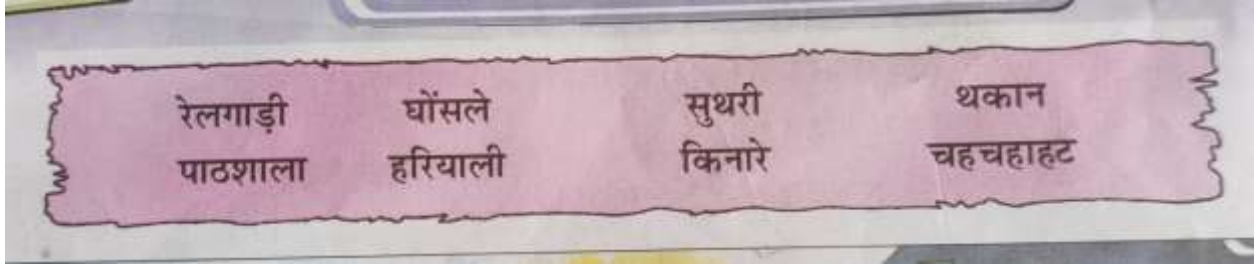 रेलगाड़ी घोंसले सुथरी थकान
पाठशाला हरियाली किनारे चहचहाहट